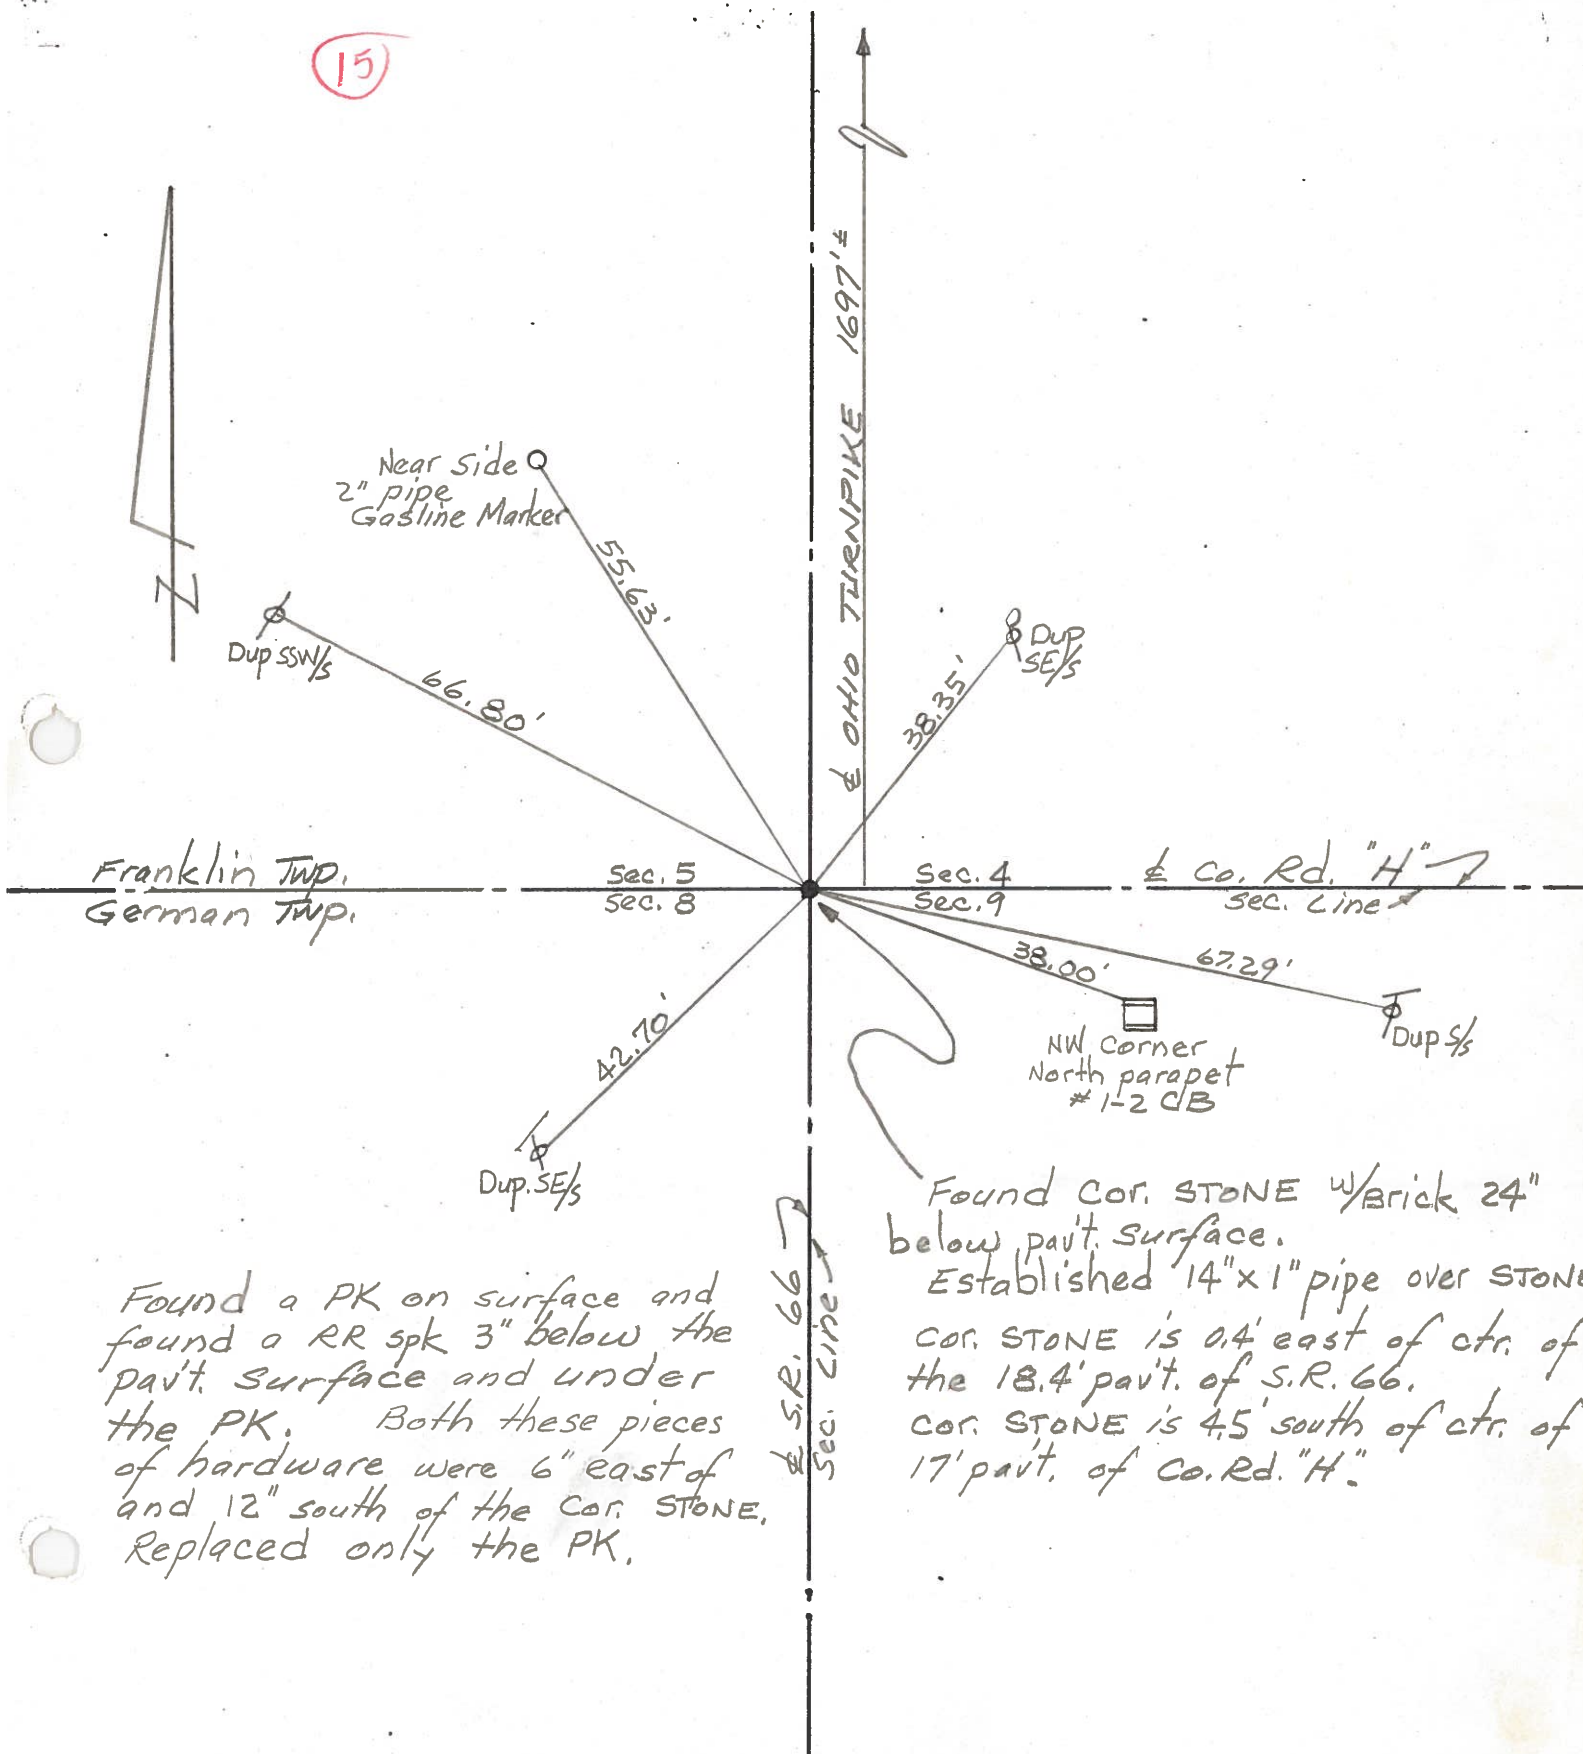 15
℄ OHIO TURNPIKE 1697'±
Near Side
2" pipe
Gasline Marker
55.63'
Dup SSW/s
66.80'
N
Dup
SE/s
38.35'
Franklin Twp.
German Twp.
Sec. 5
Sec. 8
Sec. 4
Sec. 9
℄ Co. Rd. "H"
Sec. Line
38.00'
67.29'
NW Corner
North parapet
# 1-2 CB
Dup S/s
42.70'
Dup. SE/s
℄ S.R. 66
Sec. Line
Found Cor. STONE w/Brick 24"
below pav't. Surface.
Established 14"x 1" pipe over STONE
Cor. STONE is 0.4' east of ctr. of
the 18.4' pav't. of S.R. 66.
Cor. STONE is 4.5' south of ctr. of
17' pav't. of Co. Rd. "H".
Found a PK on surface and
found a RR spk 3" below the
pav't. Surface and under
the PK. Both these pieces
of hardware were 6" east of
and 12" south of the Cor. STONE.
Replaced only the PK.